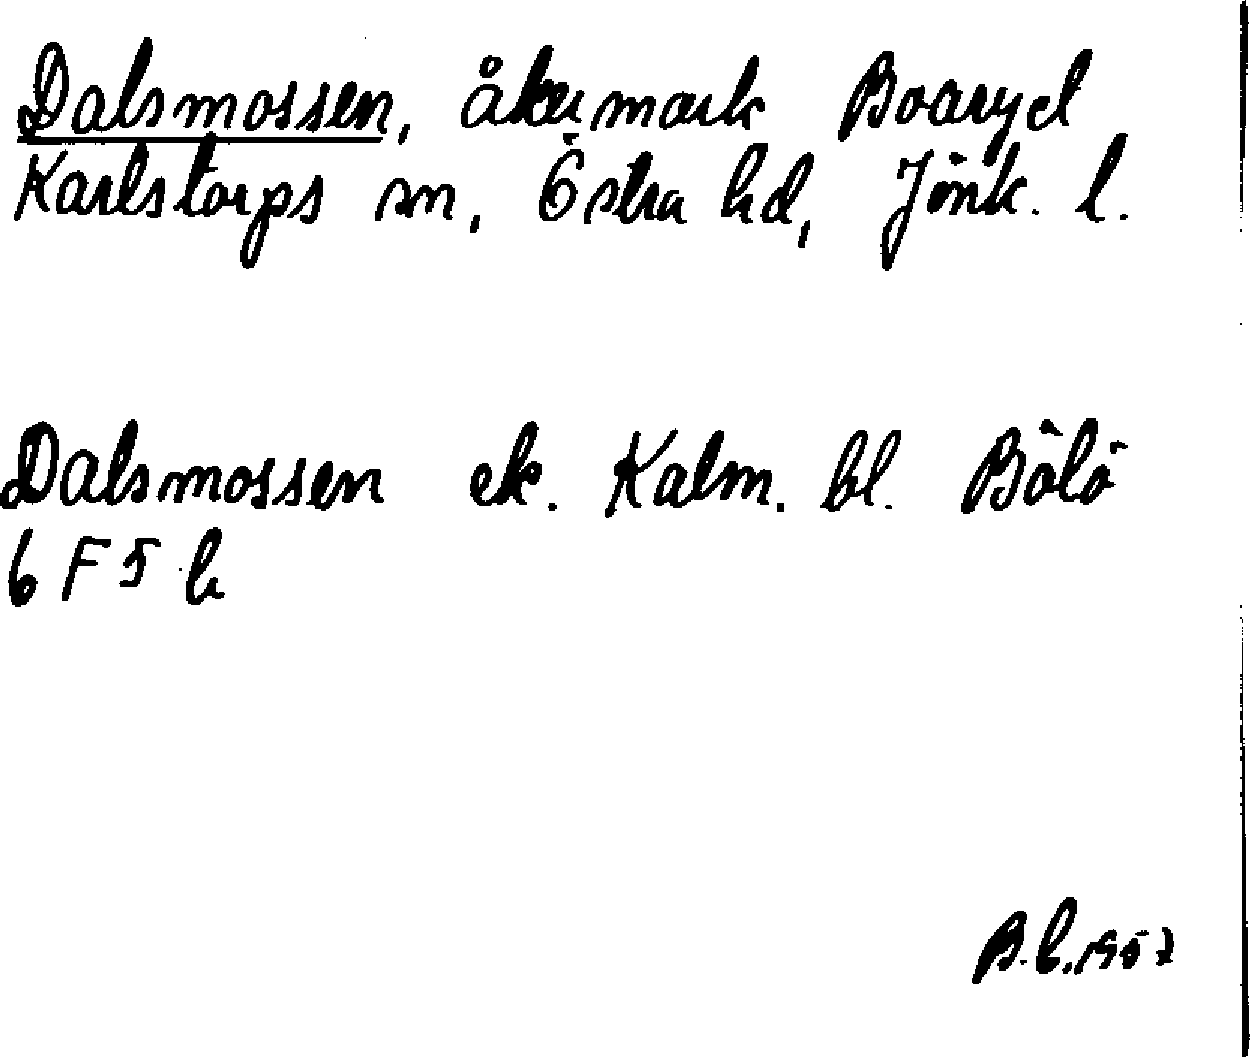 Dalsmossen, åkermark Boaryd
Karlstorps sn, Östra hd, Jönk. l.
Dalsmossen ek. Kalm. bl. Bölö
6 F 5 b
B. E. 1957